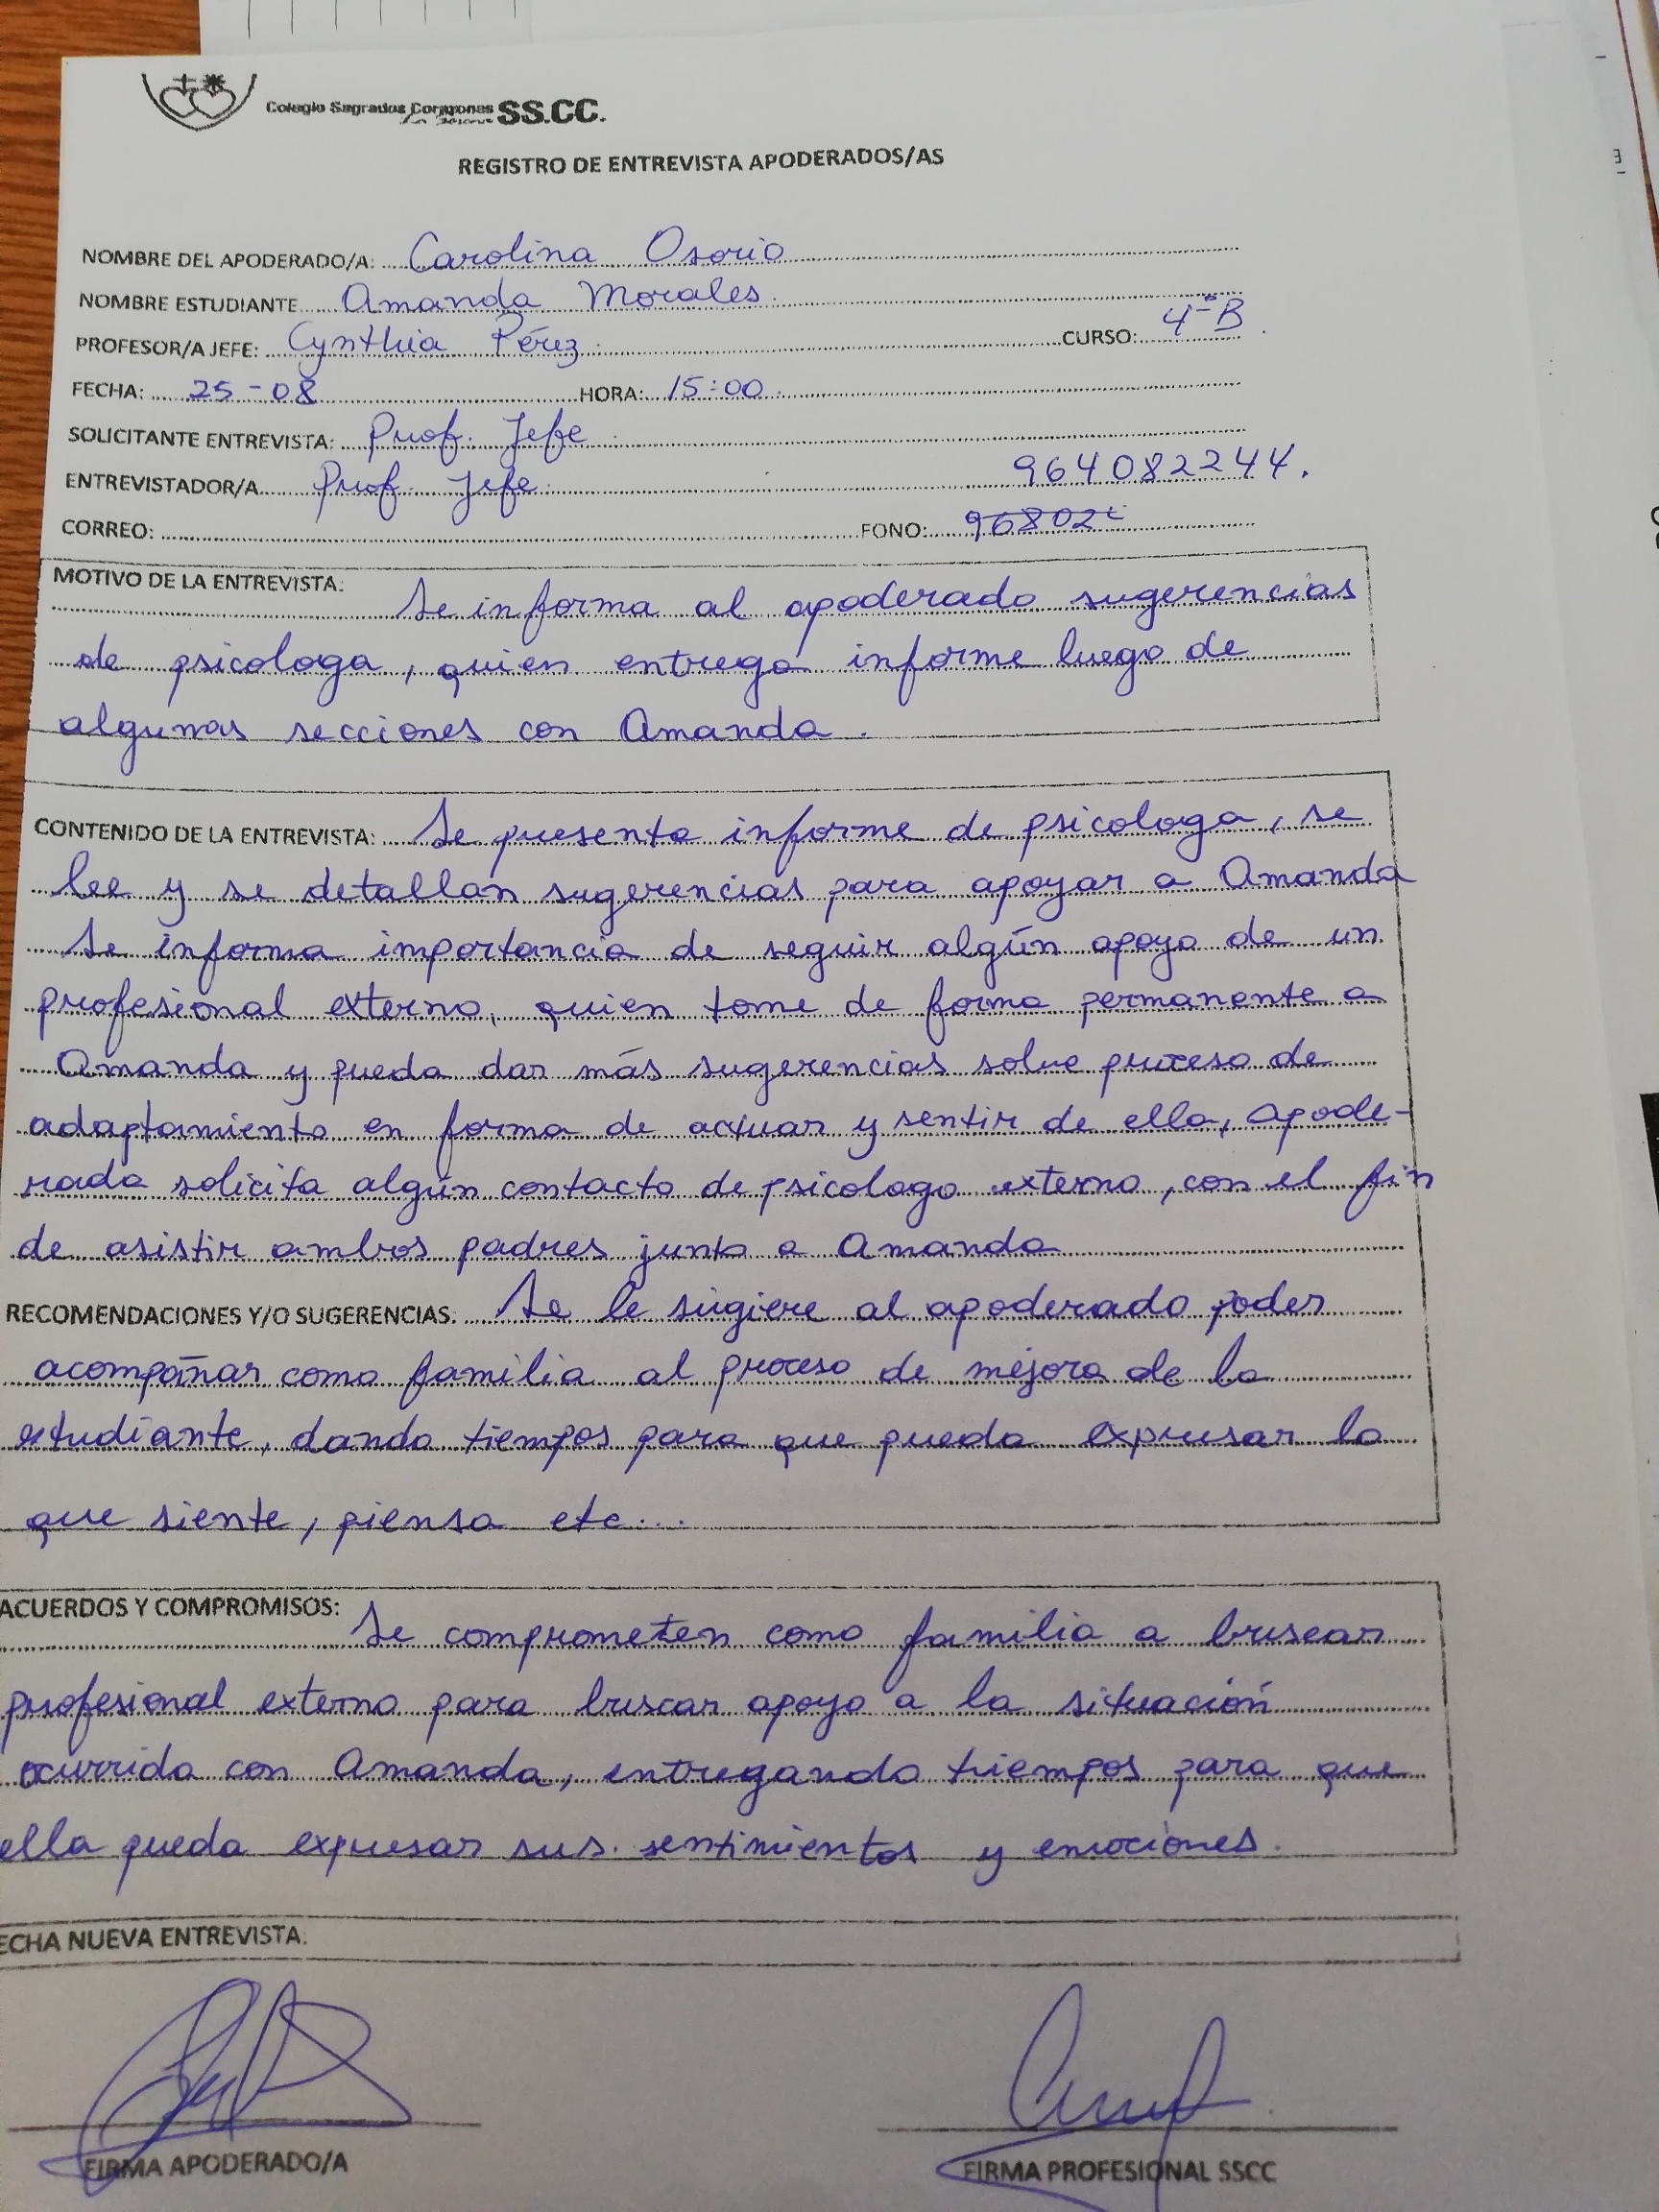 Colegio Sagrados Corazones SS.CC.
REGISTRO DE ENTREVISTA APODERADOS/AS
NOMBRE DEL APODERADO/A: Carolina Osorio
NOMBRE ESTUDIANTE Amanda Morales
PROFESOR/A JEFE: Cynthia Pérez CURSO: 4°B
FECHA: 25-08 HORA: 15:00
SOLICITANTE ENTREVISTA: Prof. Jefe
964082244.
ENTREVISTADOR/A Prof. Jefe
CORREO: FONO:
MOTIVO DE LA ENTREVISTA:
Se informa al apoderado sugerencias
de psicologa, quien entregó informe luego de
algunas secciones con Amanda.
CONTENIDO DE LA ENTREVISTA: Se presenta informe de psicologa, se
lee y se detallan sugerencias para apoyar a Amanda
Se informa importancia de seguir algún apoyo de un
profesional externo, quien tome de forma permanente a
Amanda y pueda dar más sugerencias sobre proceso de
adaptamiento en forma de actuar y sentir de ella, apode-
rada solicita algún contacto de psicologo externo, con el fin
de asistir ambos padres junto a Amanda
RECOMENDACIONES Y/O SUGERENCIAS: Se le sugiere al apoderado poder
acompañar como familia al proceso de mejora de la
estudiante, dando tiempos para que pueda expresar lo
que siente, piensa etc...
ACUERDOS Y COMPROMISOS:
Se comprometen como familia a buscar
profesional externo para buscar apoyo a la situación
ocurrida con Amanda, entregando tiempos para que
ella pueda expresar sus sentimientos y emociones.
ECHA NUEVA ENTREVISTA:
FIRMA APODERADO/A FIRMA PROFESIONAL SSCC